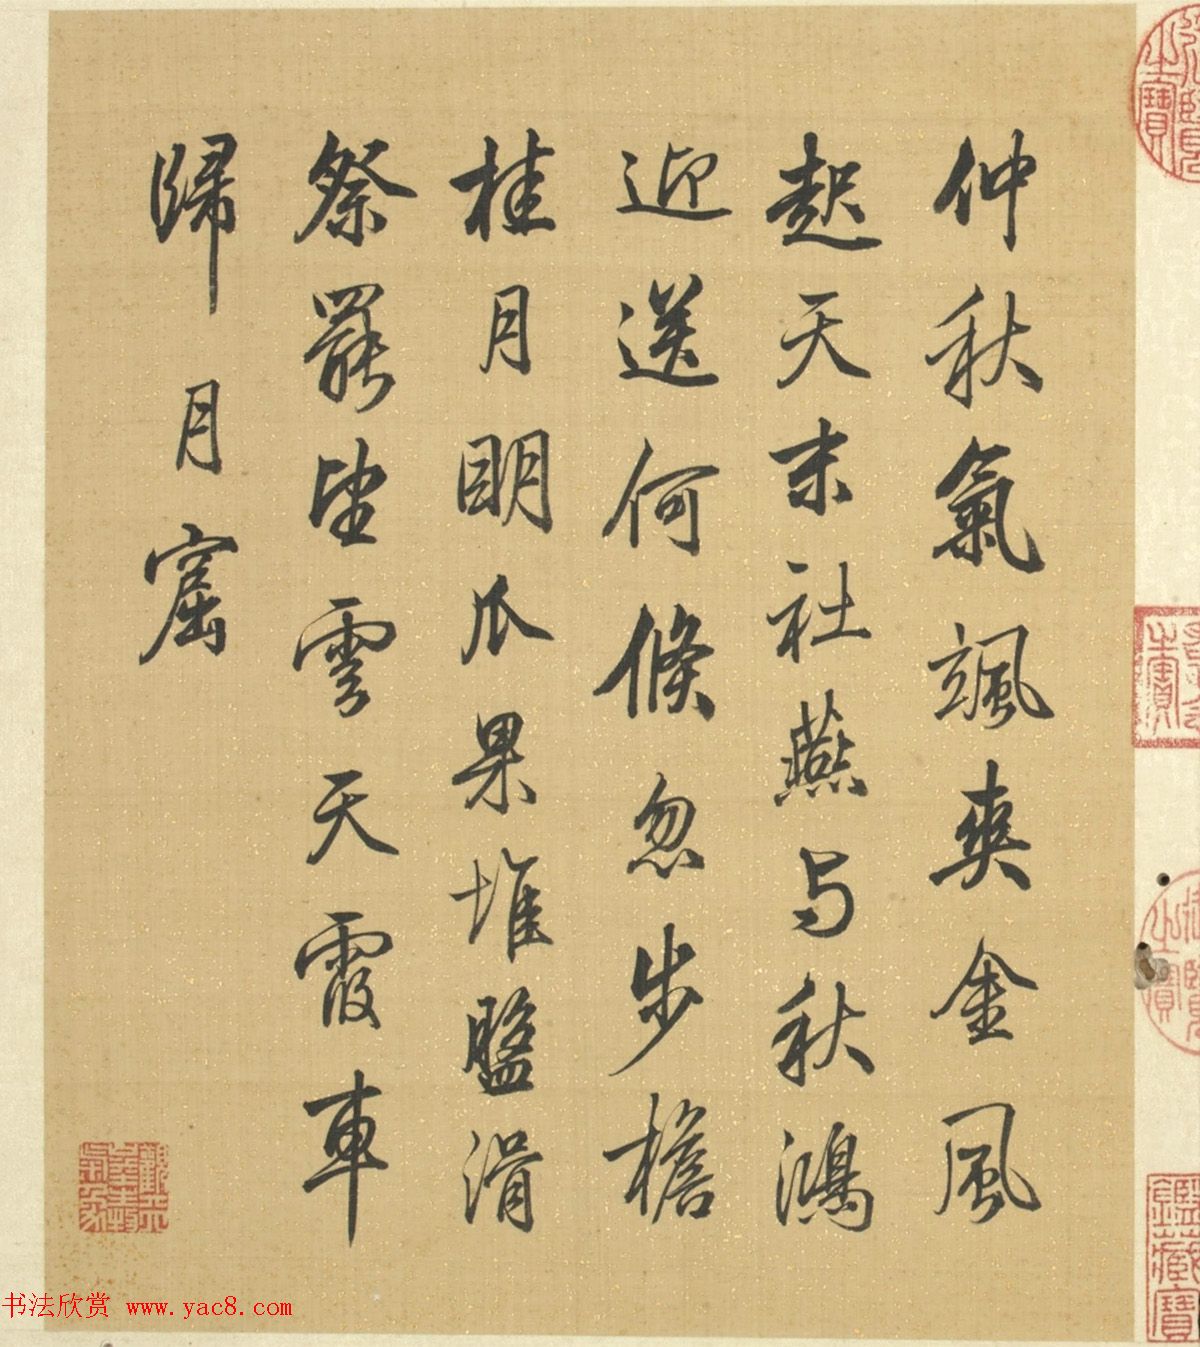 仲秋氣颯爽金風
起天末社燕与秋鴻
迎送何倏忽步檐
桂月明瓜果堆盤滑
祭罷望雲天霞車
歸月窟
鑑藏寶
书法欣赏 www.yac8.com